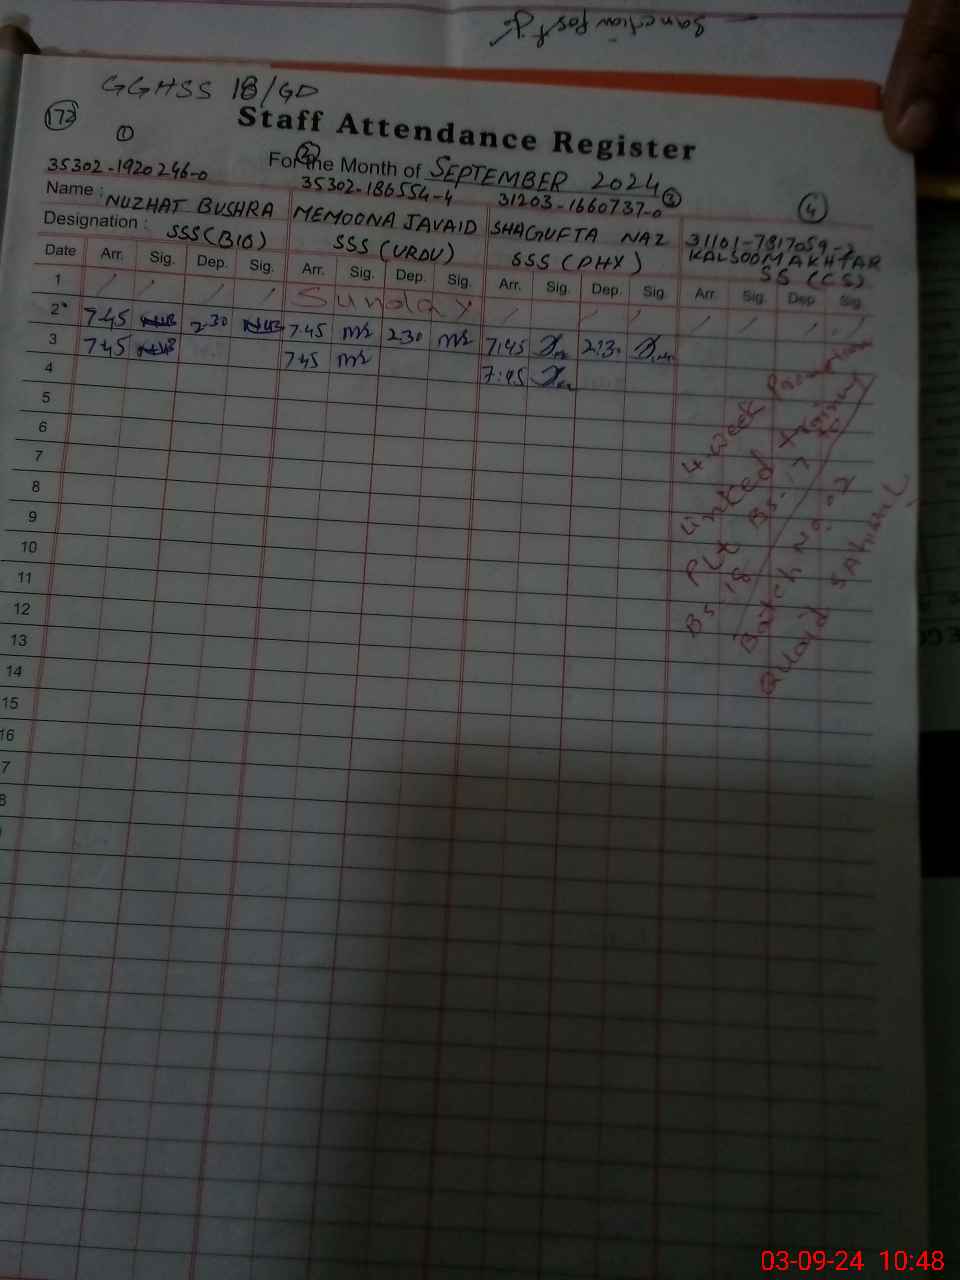 Sanction Post
GGHSS 18/GD
172
Staff Attendance Register
For the Month of SEPTEMBER 2024
1
2
3
4
35302-1920246-0
35302-186554-4
31203-1660737-0
31101-7817059-2
Name : NUZHAT BUSHRA
MEMOONA JAVAID
SHAGUFTA NAZ
KALSOOM AKHTAR
Designation : SSS(BIO)
SSS (URDU)
SSS (PHY)
SS (CS)
Date Arr. Sig. Dep. Sig. Arr. Sig. Dep. Sig. Arr. Sig. Dep. Sig. Arr. Sig. Dep. Sig.
1 Sunday
2 7.45 2 30 7.45 2 30 7:45 2:3.
3 7.45 7 45 7:45
4
5
6
7
8
9
10
11
12
13
14
15
16
7
8
4 week Promotion
Linked training
PLT BS-17 to
BS 18
Batch No. 02
Quaid SAHIWAL
03-09-24 10:48